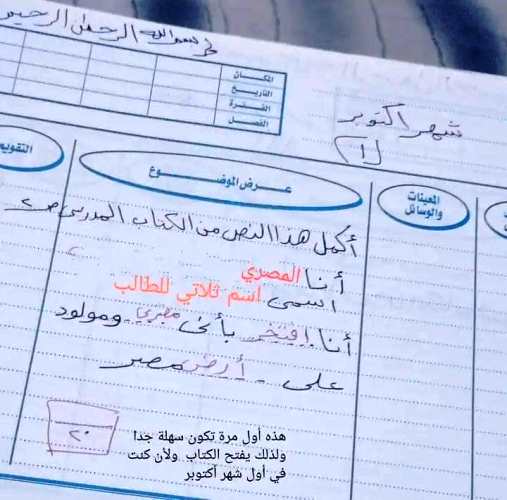 بسم الله الرحمن الرحيم
المكان
التاريخ
الفترة
الفصل
شهر اكتوبر
(١)
المعينات والوسائل
عرض الموضوع
التقويم
أكمل هذا النص من الكتاب المدرسى ص ٢
أنا المصري
اسمى اسم ثلاثي للطالب
أنا افتخر بأنى مصري ومولود
على أرض مصر
٢٠
هذه أول مرة تكون سهلة جدا
ولذلك يفتح الكتاب ولأن كنت
في أول شهر أكتوبر